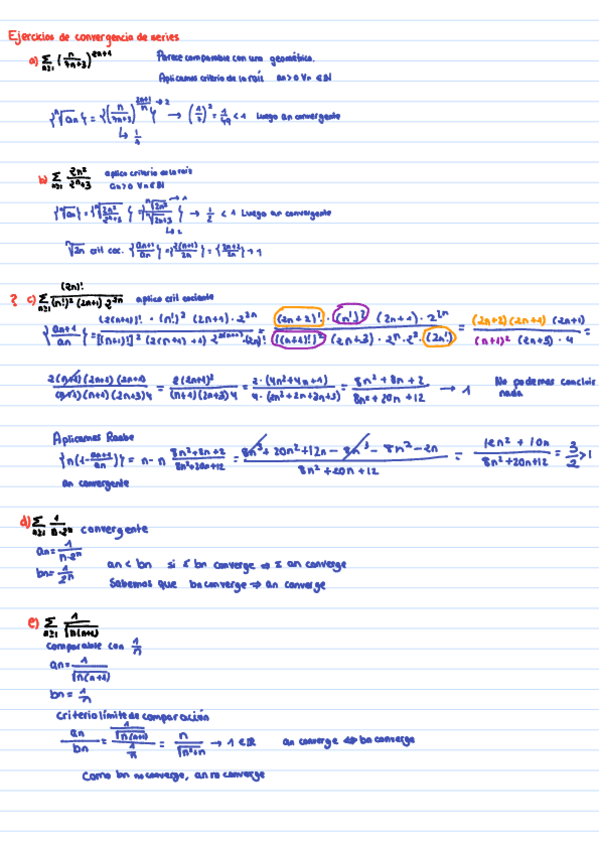 Ejercicios de convergencia de series
a) Σ n≥1 (n/(7n+3))^(2n+1) Parece comparable con una geométrica.
Aplicamos criterio de la raíz an>0 ∀n∈ℕ
{ⁿ√an} = {(n/(7n+3))^((2n+1)/n)} → 2 → (1/7)² = 1/49 < 1 Luego an convergente
↳ 1/7
b) Σ n≥1 2n²/(2ⁿ+3) aplico criterio de la raíz
an>0 ∀n∈ℕ
{ⁿ√an} = {ⁿ√(2n²/(2ⁿ+3))} {ⁿ√2n²/ⁿ√(2ⁿ+3)} → 1/2 < 1 Luego an convergente
ⁿ√2n crit coc. {an+1/an} = {2(n+1)/2n} = {(2n+2)/2n} → 1
? c) Σ n≥1 (2n)!/((n!)² (2n+1) 2^(2n)) aplico crit cociente
{an+1/an} = (2(n+1))! · (n!)² (2n+1) · 2^(2n) / [(n+1)!]² (2(n+1)+1) 2^(2(n+1)) · (2n)! = (2n+2)! · (n!)² (2n+1) · 2^(2n) / ((n+1)!)² (2n+3) · 2ⁿ · 2² · (2n!) = (2n+2)(2n+1)(2n+1) / (n+1)² (2n+3) · 4 =
2(n+1)(2n+1)(2n+1) / (n+1)(n+1)(2n+3)4 = 2(2n+1)² / (n+1)(2n+3)4 = 2·(4n²+4n+1) / 4·(2n²+2n+3n+3) = (8n²+8n+2) / (8n²+20n+12) → 1 No podemos concluir
nada
Aplicamos Raabe
{n(1-an+1/an)} = n - n (8n²+8n+2)/(8n²+20n+12) = (8n³+20n²+12n-8n³-8n²-2n)/(8n²+20n+12) = (12n²+10n)/(8n²+20n+12) = 3/2 > 1
an convergente
d) Σ n≥1 1/(n·2ⁿ) convergente
an = 1/(n·2ⁿ)
bn = 1/2ⁿ an < bn si Σ bn converge ⇒ Σ an converge
Sabemos que bn converge ⇒ an converge
e) Σ n≥1 1/√(n(n+1))
comparable con 1/n
an = 1/√(n(n+1))
bn = 1/n
Criterio límite de comparación
an/bn = (1/√(n(n+1)))/(1/n) = n/√(n²+n) → 1 ∈ ℝ an converge ⇔ bn converge
Como bn no converge, an no converge